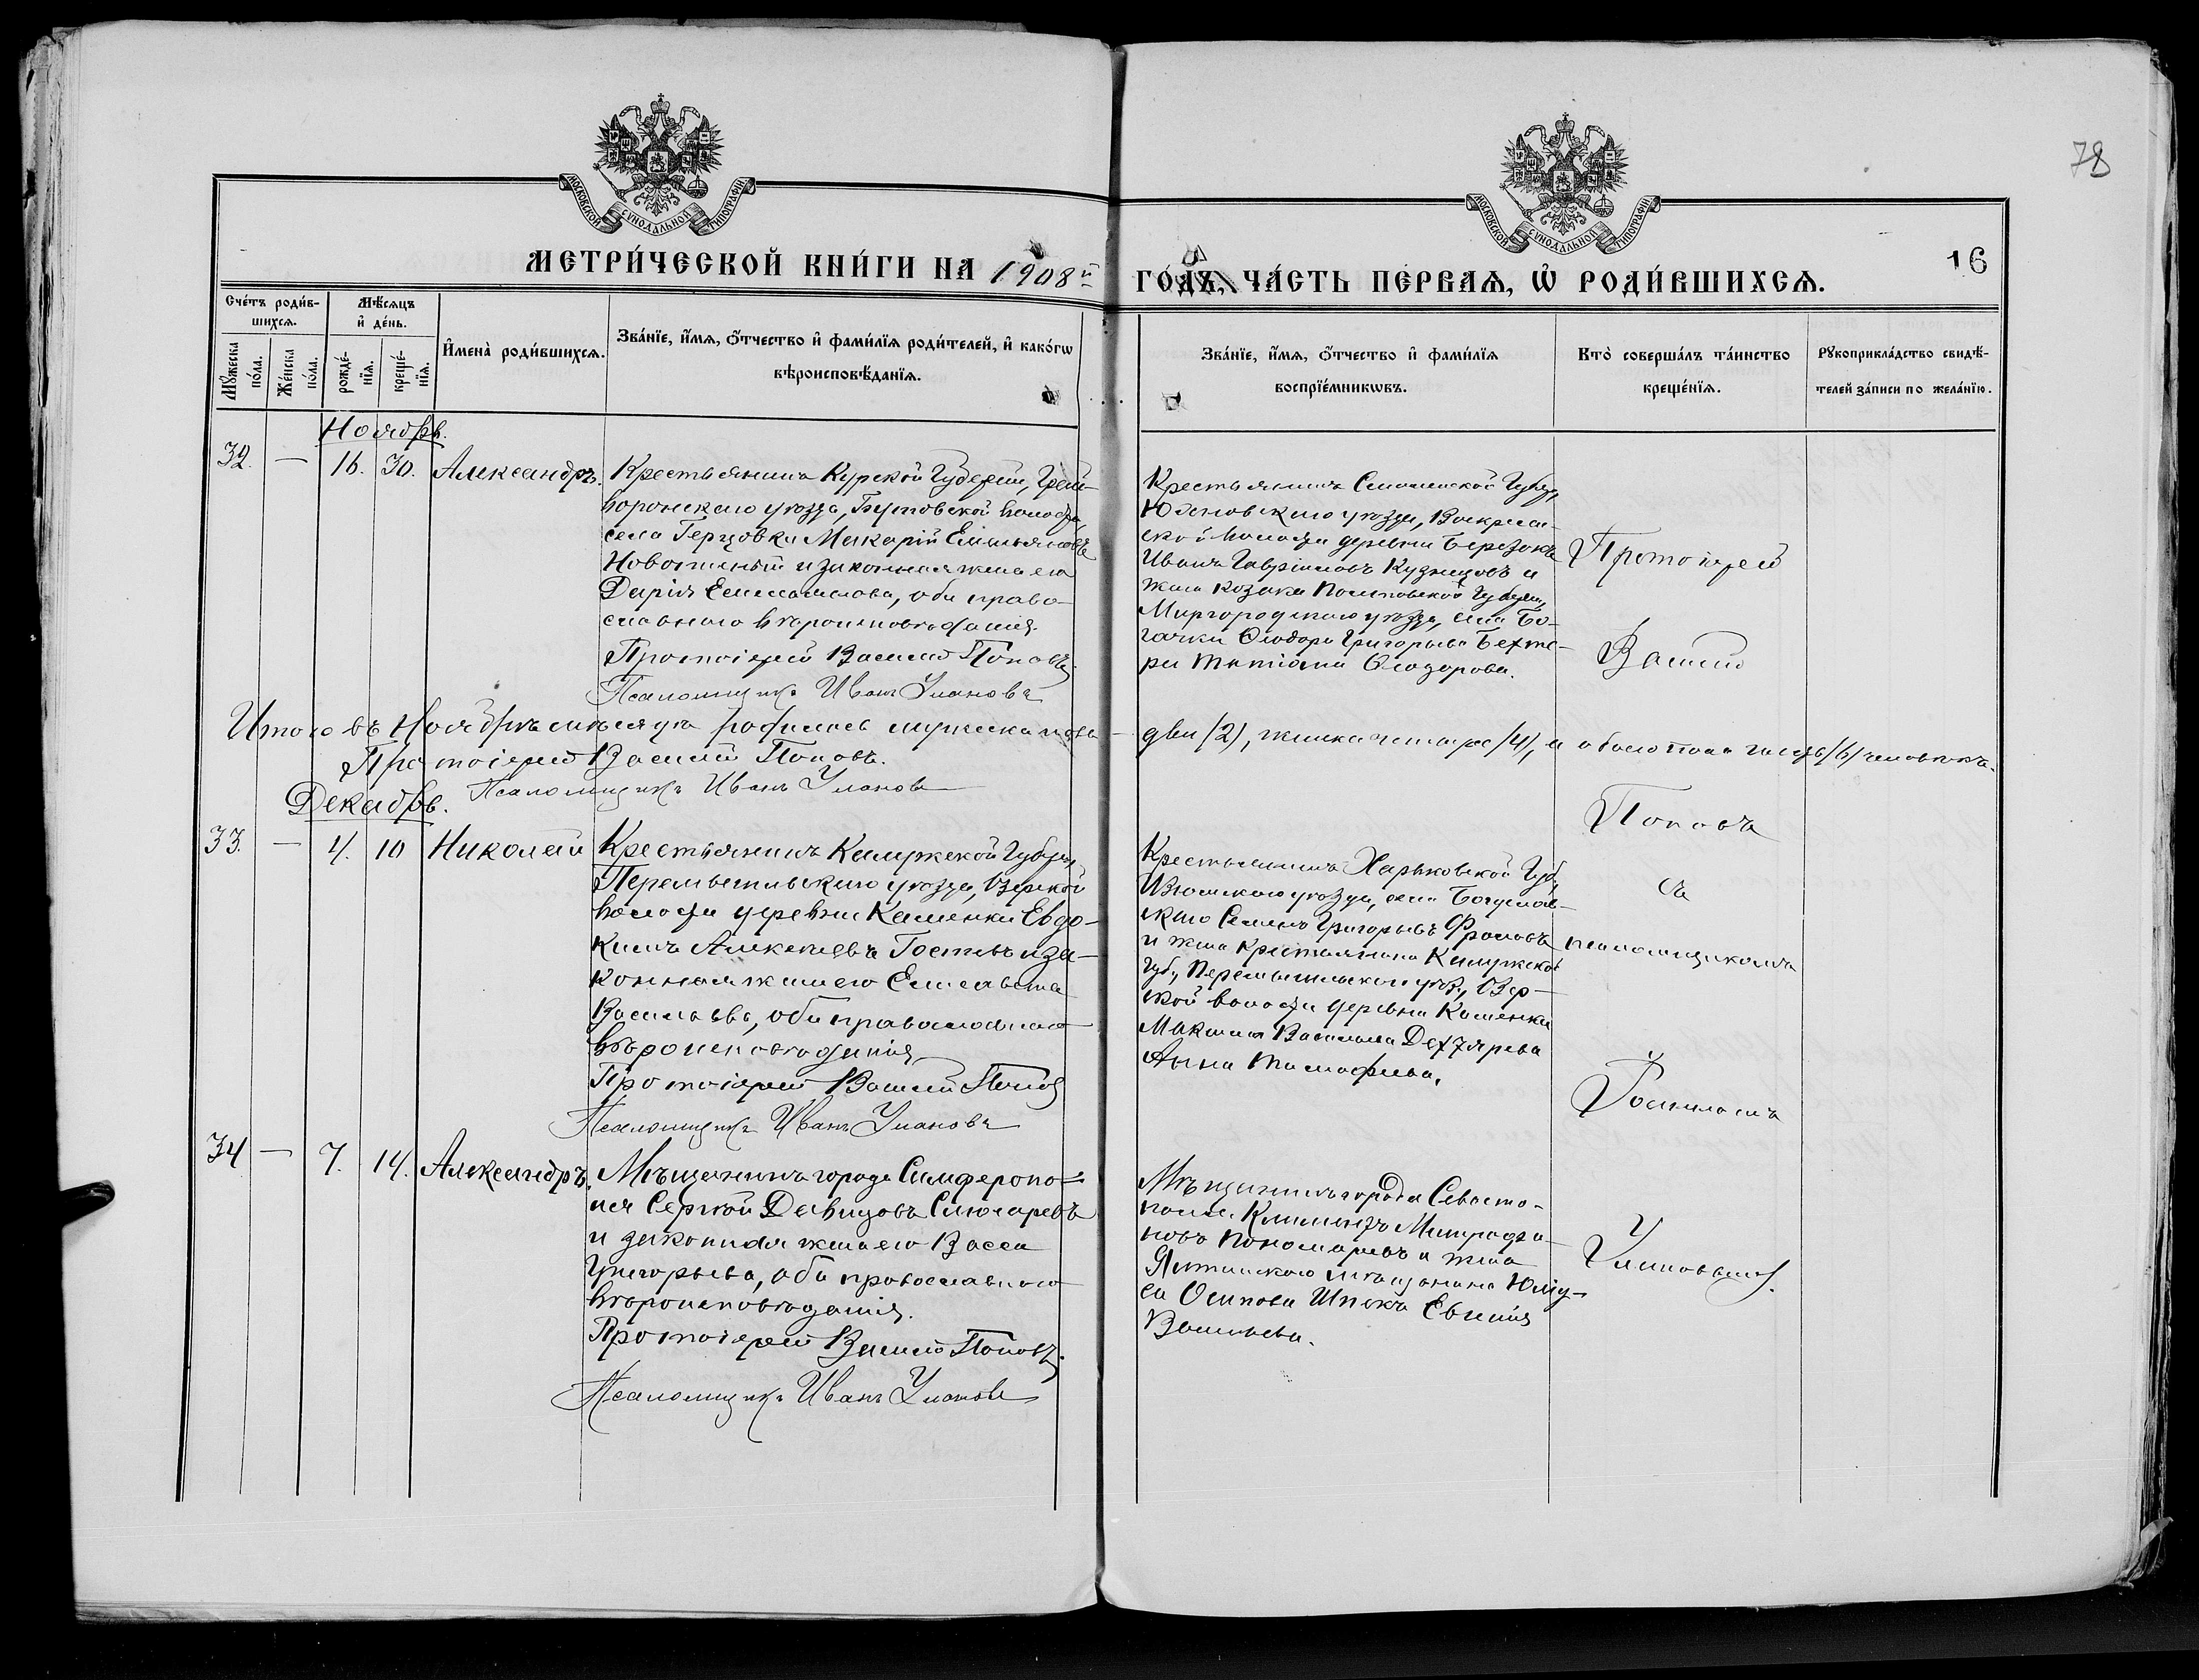 78
МОСКОВСКОЙ СѴНОДАЛЬНОЙ ТИПОГРАФІИ
МОСКОВСКОЙ СѴНОДАЛЬНОЙ ТИПОГРАФІИ
МЕТРИ́ЧЕСКОЙ КНИ́ГИ НА 1908й
ГО́ДЪ, ЧА́СТЬ ПЕ́РВАѦ, Ѡ҆ РОДИ́ВШИХСѦ.
16
Сче́тъ роди́в-
шихсѧ.
Мѣ́сяцъ
и҆ де́нь.
Мꙋ́жеска по́ла.
Же́нска по́ла.
рожде́-
нїѧ.
креще́-
нїѧ.
И҆мена̀ роди́вшихсѧ.
Зва́нїе, и҆́мѧ, ѻ҆́тчество и҆ фами́лїѧ роди́телей, и҆ како́гѡ
вѣроисповѣ́данїѧ.
Зва́нїе, и҆́мѧ, ѻ҆́тчество и҆ фами́лїѧ
воспрїе́мникѡвъ.
Кто̀ соверша́лъ та́инство
креще́нїѧ.
Рꙋкоприкла́дство свидѣ́-
телей за́писи по жела́нїю.
Ноябрь.
32. — 16. 30. Александръ.
Крестьянинъ Курской Губерніи, Грай-
воронскаго уѣзда, Бутовской волости,
села Герцовки Макарій Емельяновъ
и законная жена его
Дарія, оба право-
славнаго вѣроисповѣданія.
Протоіерей Василій Поповъ.
Псаломщикъ Иванъ Улановъ
Крестьянинъ Смоленской Губер.,
Юхновскаго уѣзда, Воскресен-
ской волости деревни Березокъ
Иванъ Гавріиловъ Кузнецовъ и
жена козака Полтавской Губерніи,
Миргородскаго уѣзда, села Бо-
гачки Ѳеодора Григорьева Бехте-
ри Татіана Ѳеодорова.
Итого въ Ноябрѣ мѣсяцѣ родилось мужеска пола —
два /2/, женска четыре /4/, а обоего пола шесть /6/ человѣкъ.
Протоіерей Василій Поповъ.
Псаломщикъ Иванъ Улановъ
Декабрь.
33. — 4. 10 Николай
Крестьянинъ Калужской Губерніи,
Перемышльскаго уѣзда, Озерской
волости деревни Каменки Евдо-
кимъ Алексѣевъ Гостевъ и за-
конная жена его Елисавета
Васильева, оба православнаго
вѣроисповѣданія.
Протоіерей Василій Поповъ
Псаломщикъ Иванъ Улановъ
Крестьянинъ Харьковской Губ.,
Изюмскаго уѣзда, села Богуслав-
скаго Семенъ Григорьевъ Фроловъ
и жена крестьянина Калужской
Губ., Перемышльскаго уѣз., Озер-
ской волости деревни Каменки
Максима Васильева Дехтярева
Анна Тимофеева.
34 — 7. 14. Александръ.
Мѣщанинъ города Симферопо-
ля Сергѣй Давидовъ Слюсаревъ
и законная жена его Васса
Григорьева, оба православнаго
вѣроисповѣданія.
Протоіерей Василій Поповъ.
Псаломщикъ Иванъ Улановъ
Мѣщанинъ города Севасто-
поля Климентъ Митрофа-
новъ Пономаревъ и жена
Ялтинскаго мѣщанина
Осипова Евгенія
Васильева.
Протоіерей
Василій
Поповъ
съ
псаломщикомъ
Іоанномъ
Улановымъ.